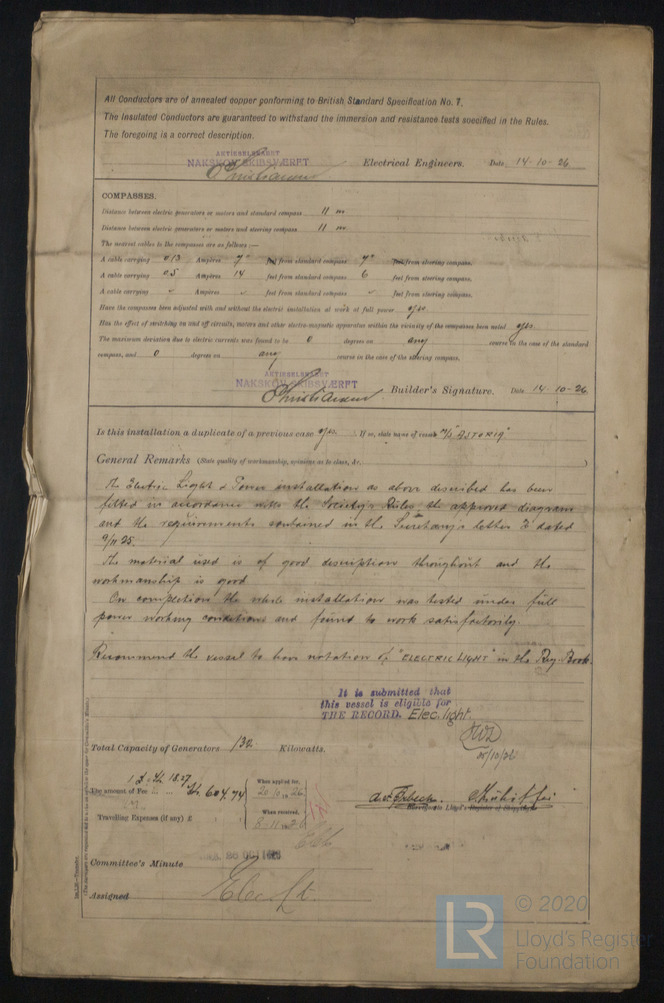 All Conductors are of annealed copper conforming to British Standard Specification No. 7.
The Insulated Conductors are guaranteed to withstand the immersion and resistance tests specified in the Rules.
The foregoing is a correct description.
AKTIESELSKABET
NAKSKOV SKIBSVÆRFT Electrical Engineers. Date 14-10-26
COMPASSES.
Distance between electric generators or motors and standard compass 11 m
Distance between electric generators or motors and steering compass 11 m
The nearest cables to the compasses are as follows:—
A cable carrying Ampères 7 feet from standard compass 7 feet from steering compass.
A cable carrying 0.5 Ampères 14 feet from standard compass 6 feet from steering compass.
A cable carrying Ampères feet from standard compass feet from steering compass.
Have the compasses been adjusted with and without the electric installation at work at full power yes
Has the effect of switching on and off circuits, motors and other electro-magnetic apparatus within the vicinity of the compasses been noted yes.
The maximum deviation due to electric currents was found to be 0 degrees on any course in the case of the standard
compass, and 0 degrees on any course in the case of the steering compass.
AKTIESELSKABET
NAKSKOV SKIBSVÆRFT Builder's Signature. Date 14-10-26
Is this installation a duplicate of a previous case yes. If so, state name of vessel M/S "ASTORIA"
General Remarks (State quality of workmanship, opinions as to class, &c.)
The Electric Light & Power installation as above described has been
fitted in accordance with the Society's Rules, the approved diagrams
and the requirements contained in the Secretary's letter E dated
9/11 25.
The material used is of good description throughout and the
workmanship is good
On completion the whole installation was tested under full
power working conditions and found to work satisfactorily.
Recommend the vessel to have notation of "ELECTRIC LIGHT" in the Reg. Book.
It is submitted that
this vessel is eligible for
THE RECORD. Elec. light.
25/10/26
Total Capacity of Generators 132 Kilowatts.
The amount of Fee Kr. 604.74
When applied for,
20 10 26
Travelling Expenses (if any) £
When received,
8-11-26
Surveyor to Lloyd's Register of Shipping.
Committee's Minute
Assigned Elec. Lt.
LR
© 2020
Lloyd's Register
Foundation